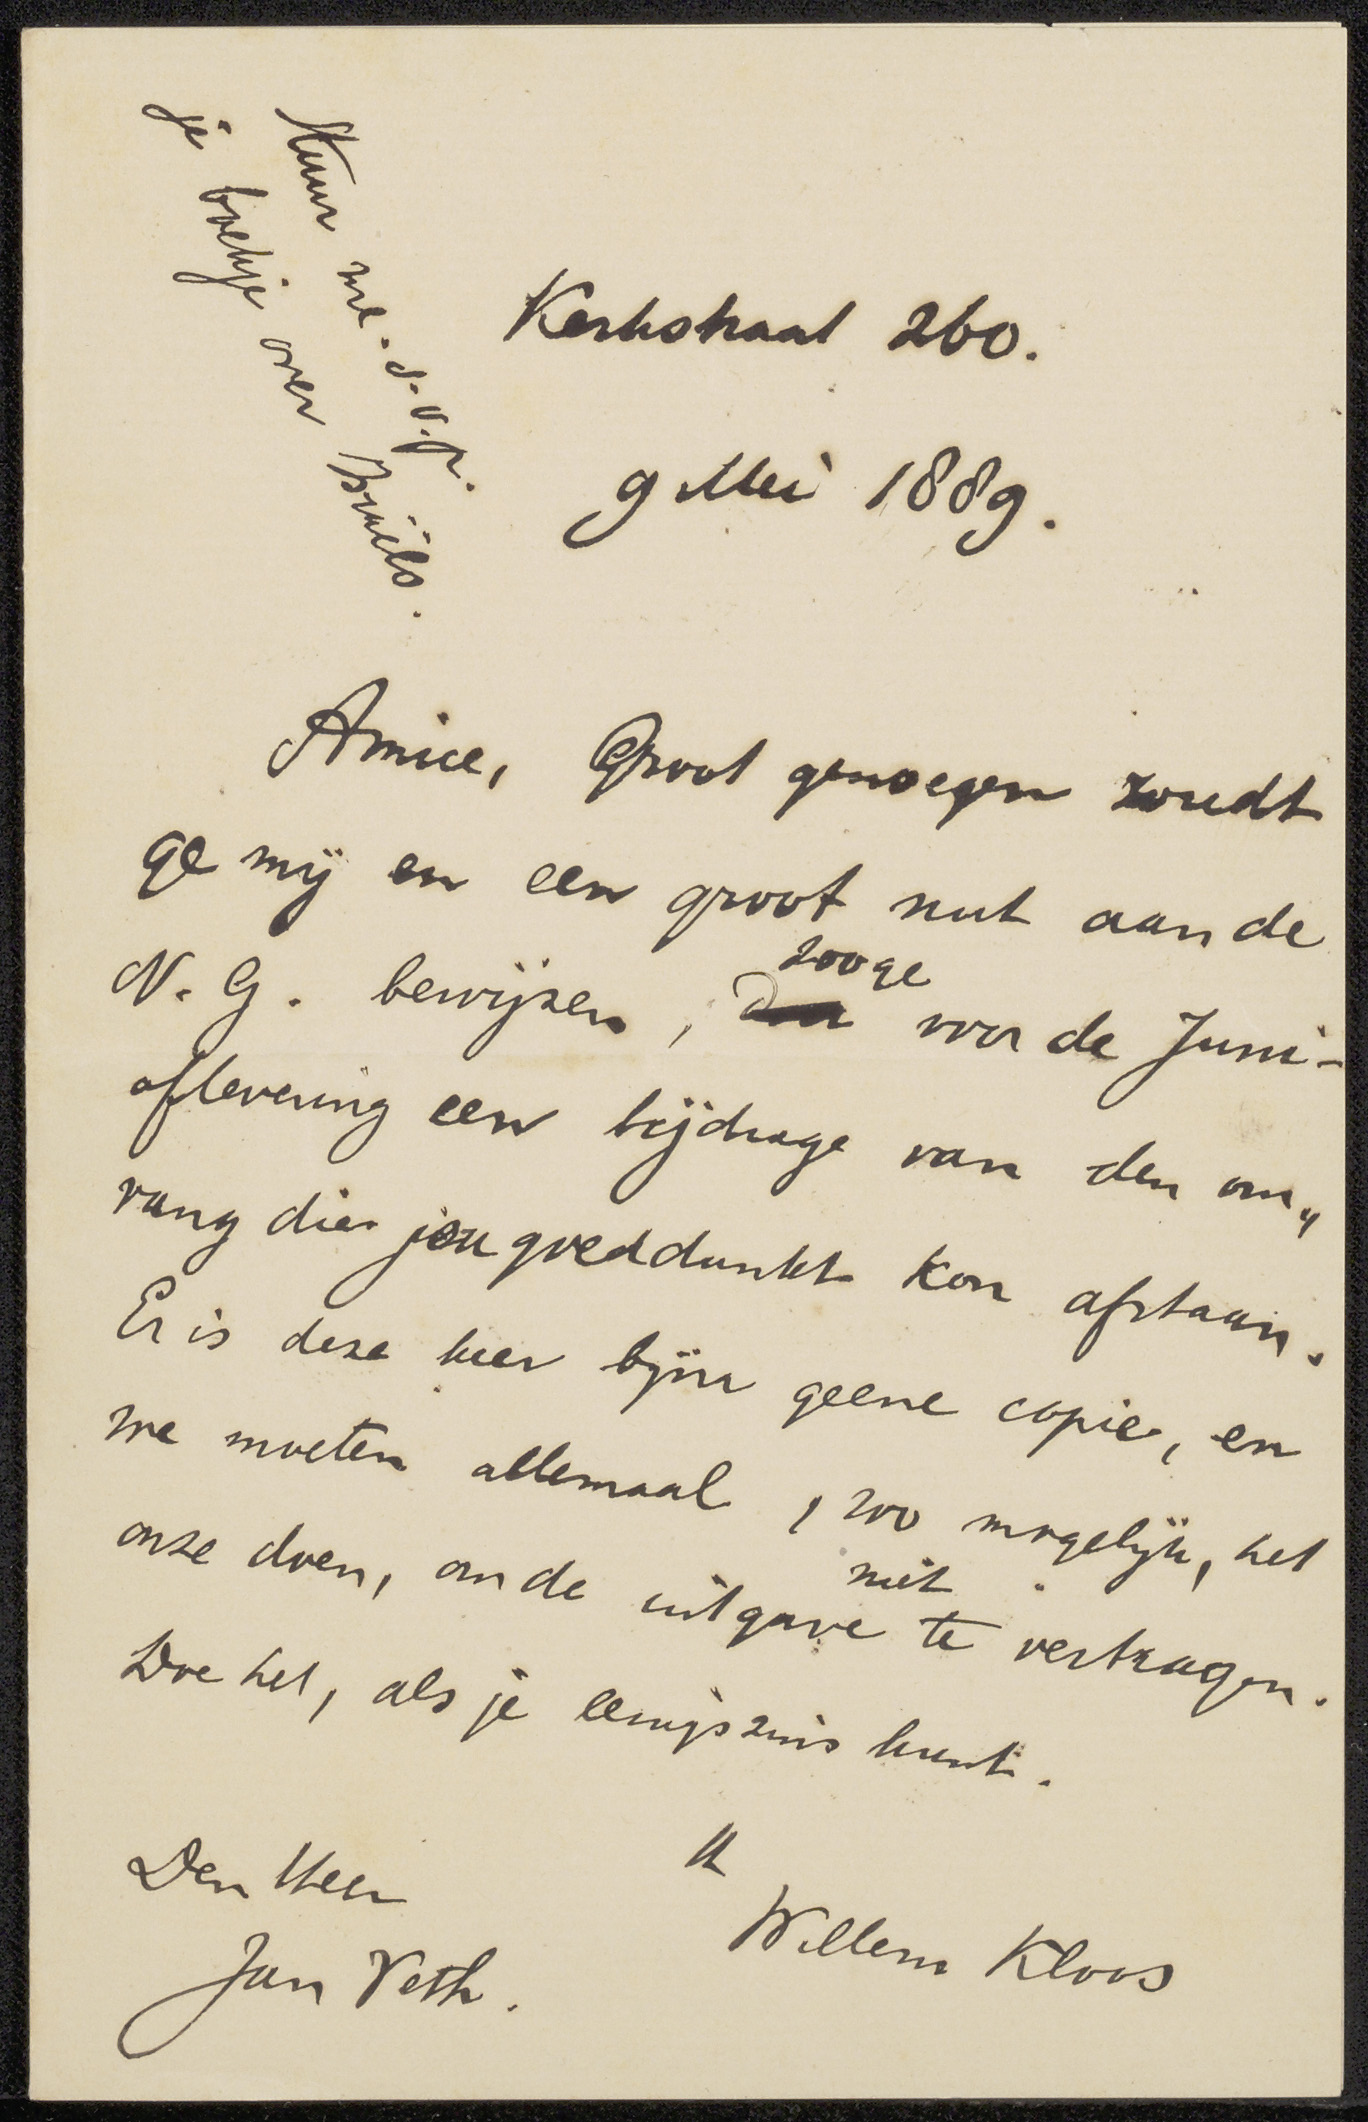 Stuur me. s.v.p.
je boekje over Bruils.
Kerkstraat 260.
9 Mei 1889.
Amice, Groot genoegen zoudt
ge mij en een groot nut aan de
N. G. bewijzen, zoo ge voor de Juni-
aflevering een bijdrage van den om„
vang die jou goeddunkt kon afstaan.
Er is deze keer bijna geene copie, en
we moeten allemaal, zoo mogelijk, het
onze doen, om de uitgave niet te vertragen.
Doe het, als je eenigszins kunt.
tt
Willem Kloos
Den Heer
Jan Veth.